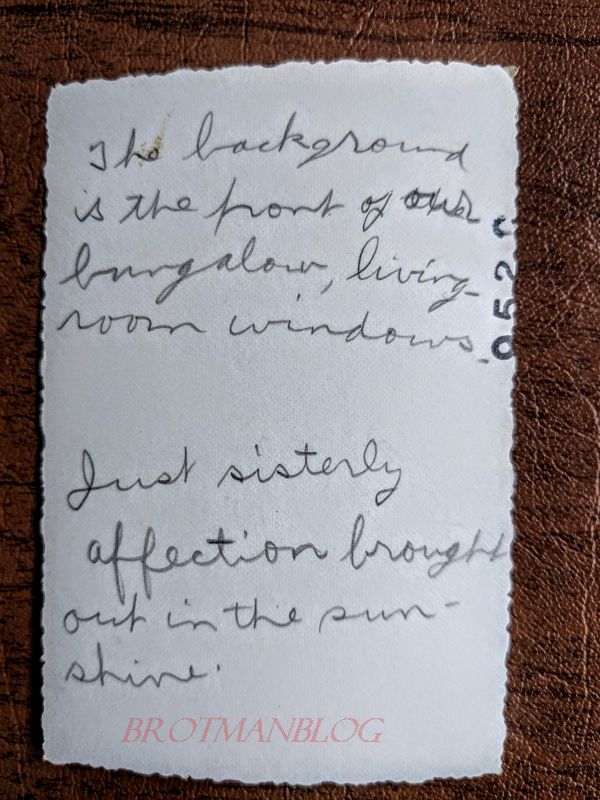 The background
is the front of our
bungalow, living-
room windows.
Just sisterly
affection brought
out in the sun-
shine.
BROTMANBLOG